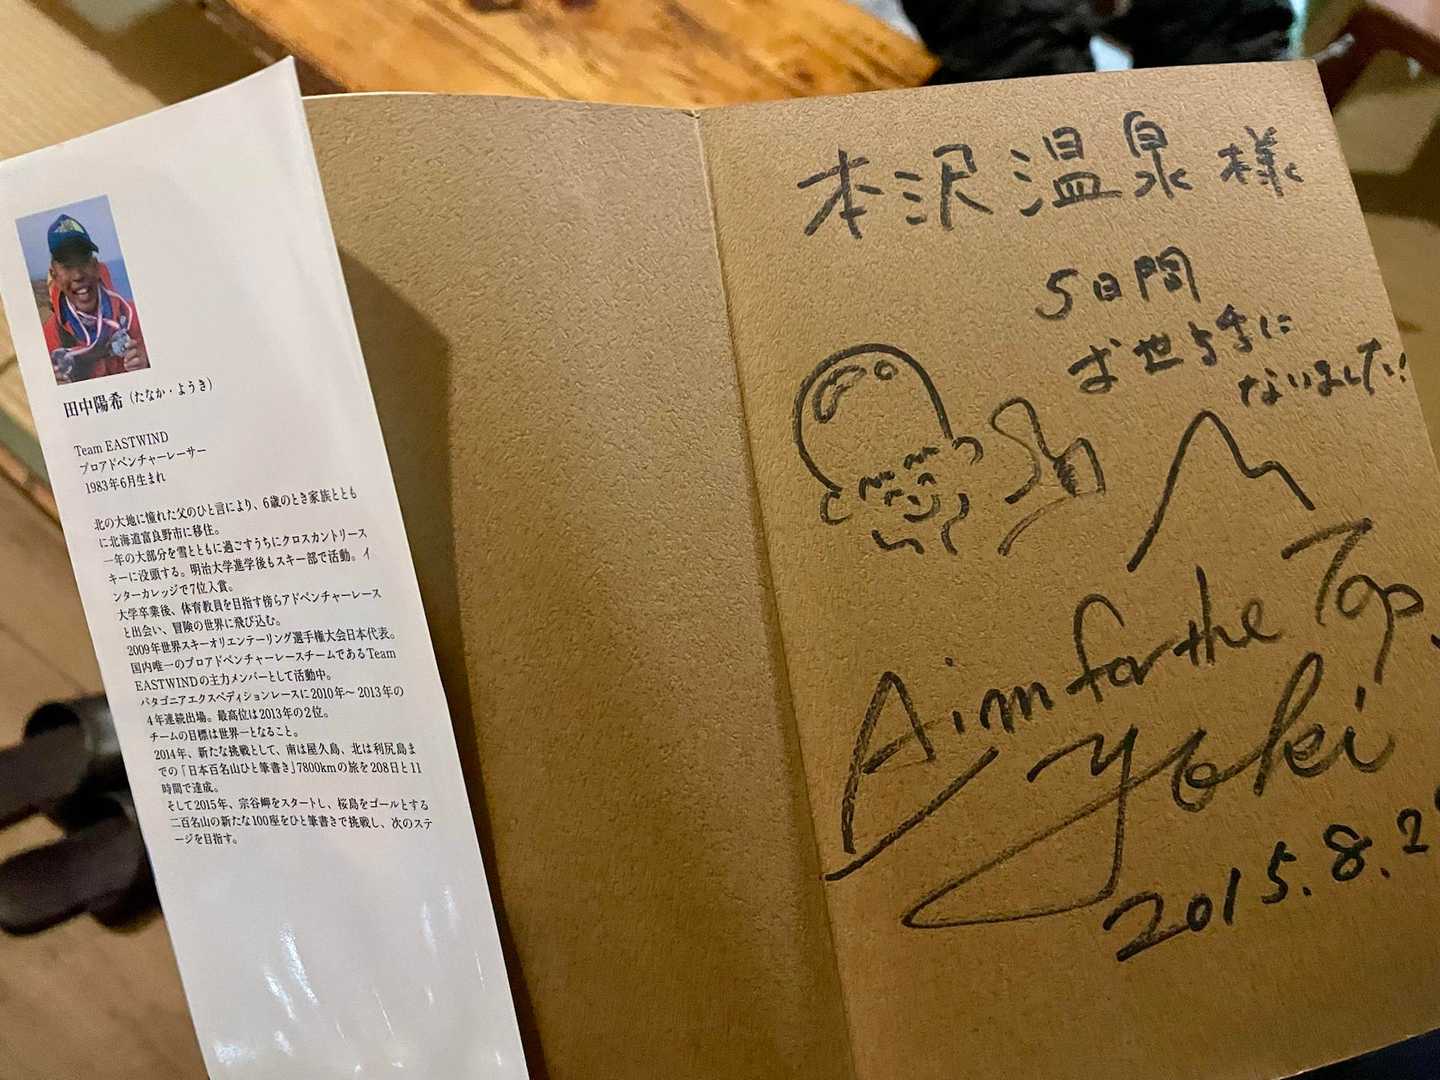 田中陽希（たなか・ようき）
Team EASTWIND
プロアドベンチャーレーサー
1983年6月生まれ
北の大地に憧れた父のひと言により、6歳のとき家族ととも
に北海道富良野市に移住。
一年の大部分を雪とともに過ごすうちにクロスカントリース
キーに没頭する。明治大学進学後もスキー部で活動。イ
ンターカレッジで7位入賞。
大学卒業後、体育教員を目指す傍らアドベンチャーレース
と出会い、冒険の世界に飛び込む。
2009年世界スキーオリエンテーリング選手権大会日本代表。
国内唯一のプロアドベンチャーレースチームであるTeam
EASTWINDの主力メンバーとして活動中。
パタゴニアエクスペディションレースに2010年〜2013年の
4年連続出場。最高位は2013年の2位。
チームの目標は世界一となること。
2014年、新たな挑戦として、南は屋久島、北は利尻島ま
での「日本百名山ひと筆書き」7800kmの旅を208日と11
時間で達成。
そして2015年、宗谷岬をスタートし、桜島をゴールとする
二百名山の新たな100座をひと筆書きで挑戦し、次のステ
ージを目指す。
本沢温泉様
5日間
お世話に
なりました!
Aim for the Top.
Yoki
2015.8.2